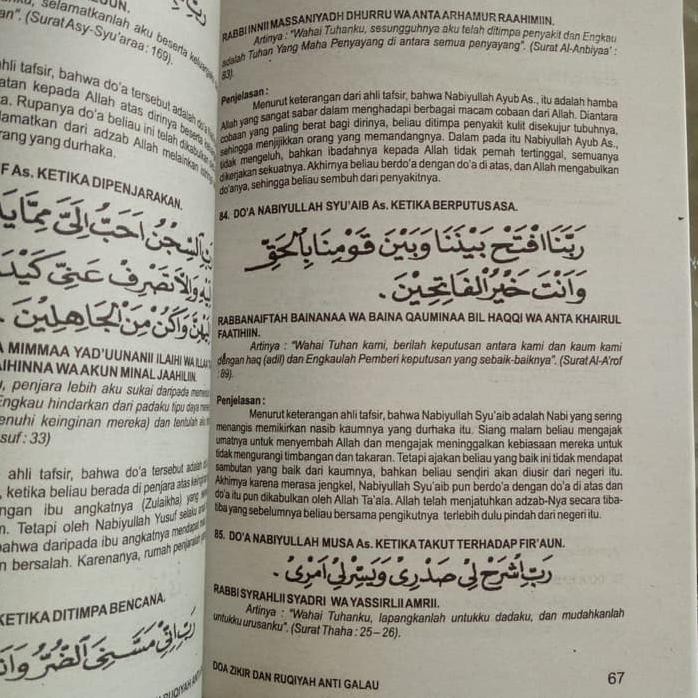 selamatkanlah aku beserta
(Surat Asy-Syu'araa : 169).
ahli tafsir, bahwa do'a tersebut adalah do'a
kepada Allah atas dirinya beserta
Rupanya do'a beliau ini telah dikabulkan
dari adzab Allah melainkan
yang durhaka.
As. KETIKA DIPENJARAKAN.
السِّجْنُ اَحَبُّ اِلَيَّ مِمَّا
وَاِلاَّ تَصْرِفْ عَنِّيْ كَيْدَ
وَاَكُنْ مِنَ الْجَاهِلِيْنَ .
MIMMAA YAD'UUNANII ILAIHI WA ILLAA
WA AKUN MINAL JAAHILIN.
penjara lebih aku sukai daripada
Engkau hindarkan dari padaku tipu daya
keinginan mereka) dan tentulah aku
: 33)
ahli tafsir, bahwa do'a tersebut adalah
ketika beliau berada di penjara atas
ibu angkatnya (Zulaikha) yang
Tetapi oleh Nabiyullah Yusuf
daripada ibu angkatnya mendapat
bersalah. Karenanya, rumah
KETIKA DITIMPA BENCANA.
رَبِّ اِنِّيْ مَسَّنِيَ الضُّرُّ
RABBI INNII MASSANIYADH DHURRU WA ANTA ARHAMUR RAAHIMIIN.
Artinya : "Wahai Tuhanku, sesungguhnya aku telah ditimpa penyakit dan Engkau
adalah Tuhan Yang Maha Penyayang di antara semua penyayang". (Surat Al-Anbiyaa' :
83).
Penjelasan :
Menurut keterangan dari ahli tafsir, bahwa Nabiyullah Ayub As., itu adalah hamba
Allah yang sangat sabar dalam menghadapi berbagai macam cobaan dari Allah. Diantara
cobaan yang paling berat bagi dirinya, beliau ditimpa penyakit kulit disekujur tubuhnya,
sehingga menjijikkan orang yang memandangnya. Dalam pada itu Nabiyullah Ayub As.,
tidak mengeluh, bahkan ibadahnya kepada Allah tidak pernah tertinggal, semuanya
dikerjakan sekuatnya. Akhirnya beliau berdo'a dengan do'a di atas, dan Allah mengabulkan
do'anya, sehingga beliau sembuh dari penyakitnya.
84. DO'A NABIYULLAH SYU'AIB As. KETIKA BERPUTUS ASA.
رَبَّنَا افْتَحْ بَيْنَنَا وَبَيْنَ قَوْمِنَا بِالْحَقِّ
وَاَنْتَ خَيْرُ الْفَاتِحِيْنَ .
RABBANAIFTAH BAINANAA WA BAINA QAUMINAA BIL HAQQI WA ANTA KHAIRUL
FAATIHIIN.
Artinya : "Wahai Tuhan kami, berilah keputusan antara kami dan kaum kami
dengan haq (adil) dan Engkaulah Pemberi keputusan yang sebaik-baiknya". (Surat Al-A'rof
: 89).
Penjelasan :
Menurut keterangan ahli tafsir, bahwa Nabiyullah Syu'aib adalah Nabi yang sering
menangis memikirkan nasib kaumnya yang durhaka itu. Siang malam beliau mengajak
umatnya untuk menyembah Allah dan mengajak meninggalkan kebiasaan mereka untuk
tidak mengurangi timbangan dan takaran. Tetapi ajakan beliau yang baik ini tidak mendapat
sambutan yang baik dari kaumnya, bahkan beliau sendiri akan diusir dari negeri itu.
Akhirnya karena merasa jengkel, Nabiyullah Syu'aib pun berdo'a dengan do'a di atas dan
do'a itu pun dikabulkan oleh Allah Ta'ala. Allah telah menjatuhkan adzab-Nya secara tiba-
tiba yang sebelumnya beliau bersama pengikutnya terlebih dulu pindah dari negeri itu.
85. DO'A NABIYULLAH MUSA As. KETIKA TAKUT TERHADAP FIR'AUN.
رَبِّ اشْرَحْ لِيْ صَدْرِيْ وَيَسِّرْ لِيْ اَمْرِيْ .
RABBI SYRAHLII SYADRI WA YASSIRLII AMRII.
Artinya : "Wahai Tuhanku, lapangkanlah untukku dadaku, dan mudahkanlah
untukku urusanku". (Surat Thaha : 25 – 26).
DOA ZIKIR DAN RUQIYAH ANTI GALAU
67